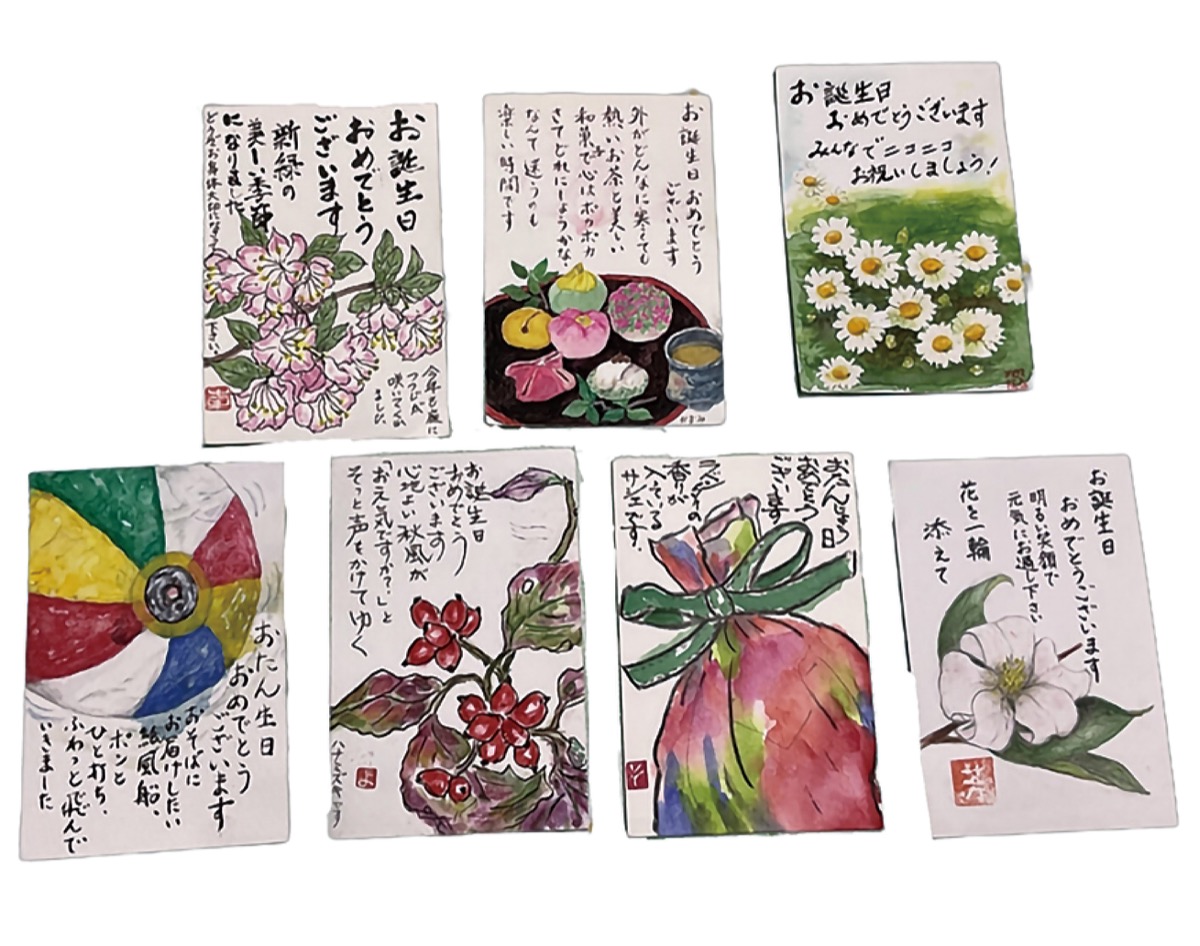 お誕生日
おめでとう
ございます
新緑の
美しい季節
になりました
今年も庭に
つつじが
咲いてくれ
ました
お誕生日おめでとう
ございます
外がどんなに寒くても
熱いお茶と美しい
和菓子で心はポカポカ
さてどれにしようかな・
なんて迷うのも
楽しい時間です
お誕生日
おめでとうございます
みんなでニコニコ
お祝いしましょう!
おたん生日
おめでとう
ございます
おそばに
お届けしたい
紙風船、
ポンと
ひと打ち、
ふわっと飛んで
いきました
お誕生日
おめでとう
ございます
心地よい秋風が
「お元気ですか?」と
そっと声をかけてゆく
ハナミズキです
よ
おたんじょう日
おめでとう
ございます
ラベンダーの
香りが
入っている
サシェです.
お誕生日
おめでとうございます
明るい笑顔で
元気にお過し下さい
花を一輪
添えて